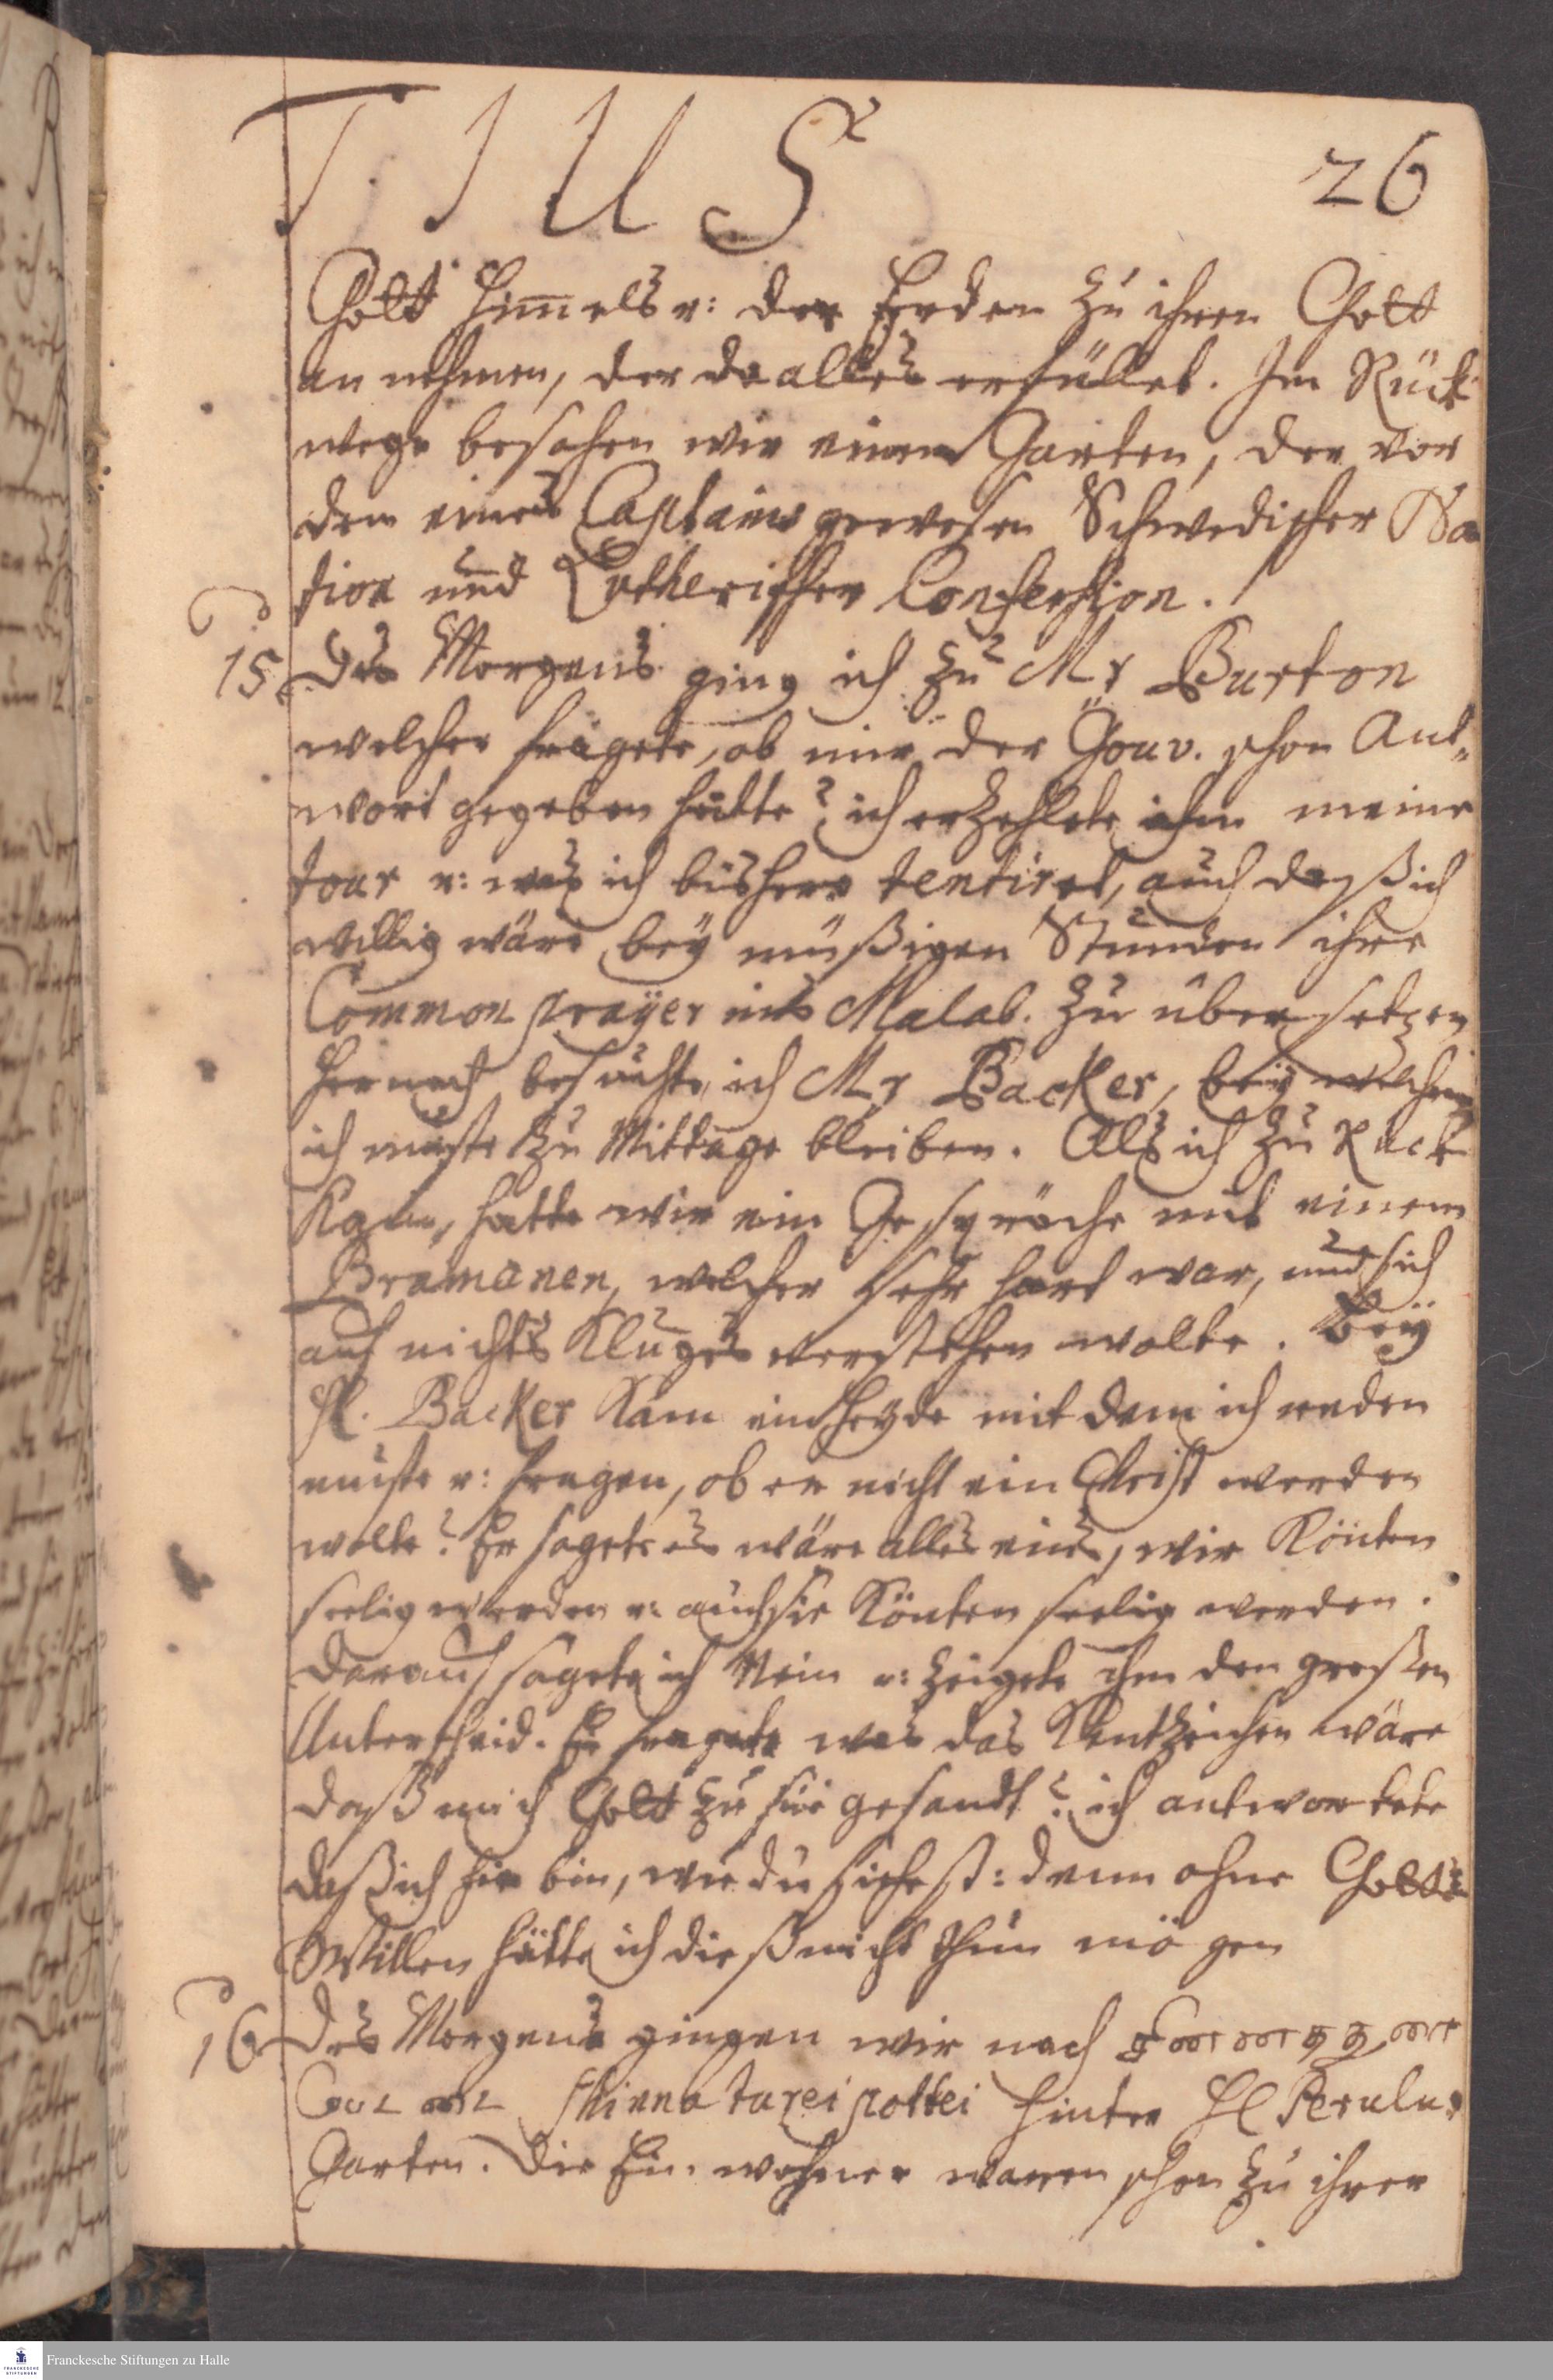 T I U S
26
Gott Himmels u: der Erden zu ihren Gott
an nehmen, der da alles erfüllet. Im Rück
wege besahen wir einen Garten, der vor
dem eines Captains gewesen Schwedischer Na
tion und Lutherischer Confession.
15. Des Morgens ging ich zu Mr Burton
welcher fragete, ob mir der Gouv. schon Ant„
wort gegeben hätte? ich erzehlete ihm meine
tour u: was ich bishero tentiret, auch daß ich
willig wäre bey müßigen Stunden ihre
Common prayer ins Malab. zu übersetzen
Hernach besuchte ich Mr Backer, bey welchem
ich muste zu Mittage bleiben. Als ich zu Ruck
Kam, hatte wir ein Gespräche mit einem
Bramanen, welcher sehr hart war, und sich
auf nichts Kluges verstehen wolte. Bey
H. Backer Kam ein Heyde mit dem ich reden
muste u: fragen, ob er nicht ein Christ werden
wolte? Er sagete es wäre alles eins, wir Könten
seelig werden u: auch sie Könten seelig werden.
Darauf sagete ich Nein u: zeigete ihm den großen
Unterscheid. Er fragete was das Kentzeichen wäre
daß mich Gott zu sie gesandt? ich antwortete
daß ich hier bin, wie du siehest: denn ohne Gottes
Willen hätte ich dieß nicht thun mögen
16 Des Morgens gingen wir nach
Shinna turei pottei hinter H Perulu
Garten. Die Einwohner waren schon zu ihrer
Franckesche Stiftungen zu Halle